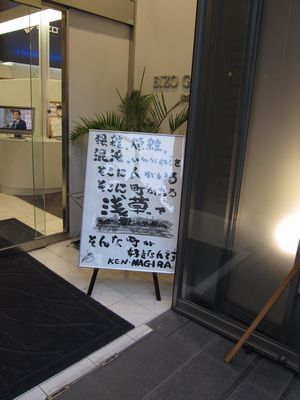 EIZO G
猥雑、煩雑、
混沌、いかがわしさ
そこに人がいる
そこに町がある
浅草って
そんな町が
好きなんです
KEN・NAGIRA